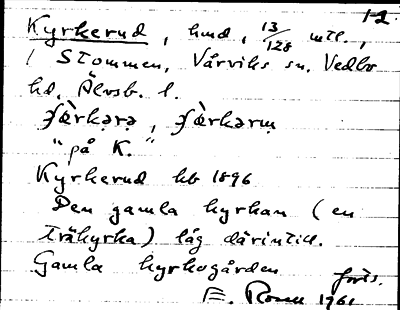 12.
Kyrkerud, hmd, 13/128 mtl.,
i Stommen, Vårviks sn. Vedbo
hd. Älvsb. l.
"på K."
Kyrkerud kb 1896
Den gamla kyrkan (en
träkyrka) låg därintill.
Gamla kyrkogården forts.
E. Rosen 1961